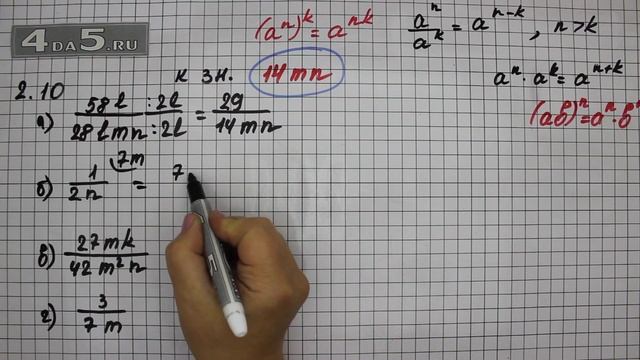 4DA5.RU
(aⁿ)ᵏ = aⁿᵏ
aⁿ/aᵏ = aⁿ⁻ᵏ, n>k
к зн. 14mn
aⁿ · aᵏ = aⁿ⁺ᵏ
(aв)ⁿ = aⁿ · в
2.10
а) 58l :2l / 28lmn :2l = 29 / 14mn
б) 1 / 2n 7m = 7
в) 27mk / 42m²n
г) 3 / 7m